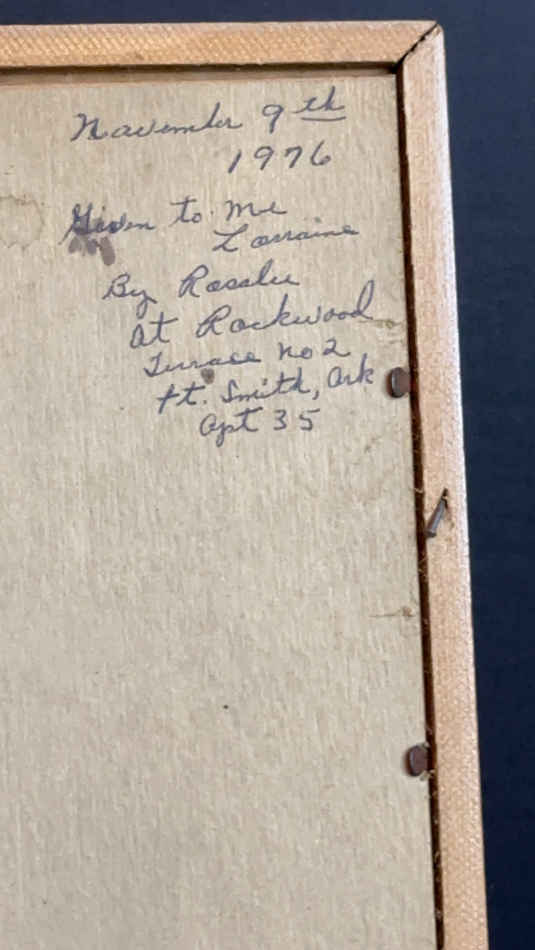 November 9th
1976
Given to me
Lorraine
By Rosalie
At Rockwood
Terrace no 2
Ft. Smith, Ark
Apt 35